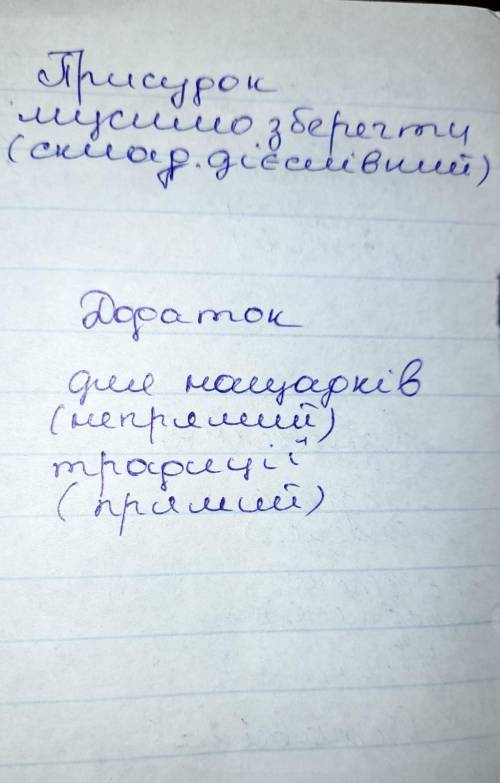 Присудок
мусимо зберегти
(склад. дієслівний)
Додаток
для нащадків
(непрямий)
традиції
(прямий)